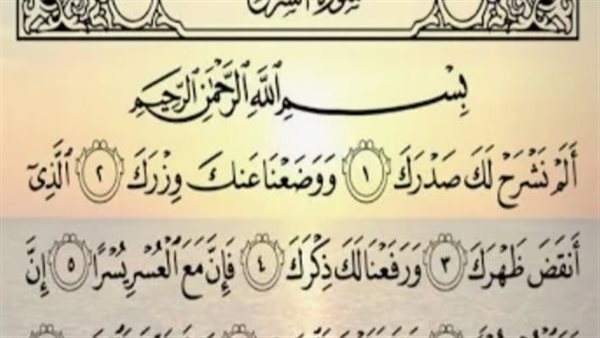 سورة الشرح
بِسْمِ اللَّهِ الرَّحْمَٰنِ الرَّحِيمِ
أَلَمْ نَشْرَحْ لَكَ صَدْرَكَ ١ وَوَضَعْنَا عَنكَ وِزْرَكَ ٢ الَّذِي
أَنقَضَ ظَهْرَكَ ٣ وَرَفَعْنَا لَكَ ذِكْرَكَ ٤ فَإِنَّ مَعَ الْعُسْرِ يُسْرًا ٥ إِنَّ